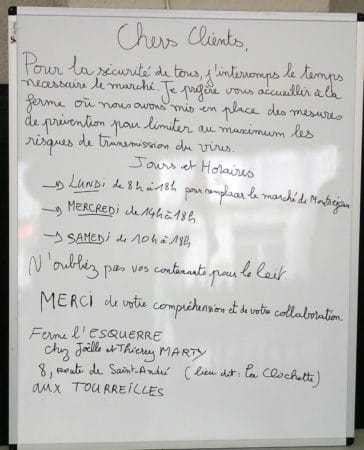 Chers Clients,
Pour la sécurité de tous, j'interromps le temps
necessaire le marché. Je préfère vous accueillir à la
ferme où nous avons mis en place des mesures
de prévention pour limiter au maximum les
risques de transmission du virus.
Jours et Horaires
→ LUNDI de 8h à 18h pour remplacer le marché de Montréjeau
→ MERCREDI de 14h à 18h
→ SAMEDI de 10h à 18h
N'oubliez pas vos contenants pour le lait
MERCI de votre compréhension et de votre collaboration
Ferme l'ESQUERRE
chez Joëlle et Thierry MARTY
8, route de Saint-André (lieu dit : la Clochette)
aux TOURREILLES